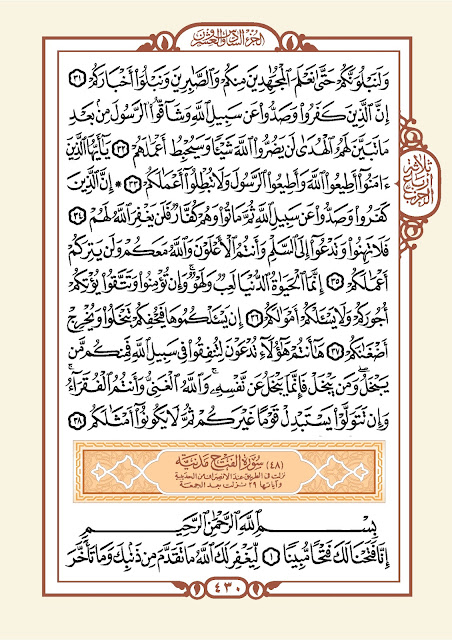 الجُزْءُ السَّادِسُ وَالعِشْرُونَ
وَلَنَبْلُوَنَّكُمْ حَتَّىٰ نَعْلَمَ ٱلْمُجَٰهِدِينَ مِنكُمْ وَٱلصَّٰبِرِينَ وَنَبْلُوَا۟ أَخْبَارَكُمْ ٣١
إِنَّ ٱلَّذِينَ كَفَرُوا۟ وَصَدُّوا۟ عَن سَبِيلِ ٱللَّهِ وَشَآقُّوا۟ ٱلرَّسُولَ مِنۢ بَعْدِ
مَا تَبَيَّنَ لَهُمُ ٱلْهُدَىٰ لَن يَضُرُّوا۟ ٱللَّهَ شَيْـًٔا وَسَيُحْبِطُ أَعْمَٰلَهُمْ ٣٢ يَٰٓأَيُّهَا ٱلَّذِينَ
ءَامَنُوٓا۟ أَطِيعُوا۟ ٱللَّهَ وَأَطِيعُوا۟ ٱلرَّسُولَ وَلَا تُبْطِلُوٓا۟ أَعْمَٰلَكُمْ ٣٣ * إِنَّ ٱلَّذِينَ
كَفَرُوا۟ وَصَدُّوا۟ عَن سَبِيلِ ٱللَّهِ ثُمَّ مَاتُوا۟ وَهُمْ كُفَّارٌ فَلَن يَغْفِرَ ٱللَّهُ لَهُمْ ٣٤
فَلَا تَهِنُوا۟ وَتَدْعُوٓا۟ إِلَى ٱلسَّلْمِ وَأَنتُمُ ٱلْأَعْلَوْنَ وَٱللَّهُ مَعَكُمْ وَلَن يَتِرَكُمْ
أَعْمَٰلَكُمْ ٣٥ إِنَّمَا ٱلْحَيَوٰةُ ٱلدُّنْيَا لَعِبٌ وَلَهْوٌ ۚ وَإِن تُؤْمِنُوا۟ وَتَتَّقُوا۟ يُؤْتِكُمْ
أُجُورَكُمْ وَلَا يَسْـَٔلْكُمْ أَمْوَٰلَكُمْ ٣٦ إِن يَسْـَٔلْكُمُوهَا فَيُحْفِكُمْ تَبْخَلُوا۟ وَيُخْرِجْ
أَضْغَٰنَكُمْ ٣٧ هَٰٓأَنتُمْ هَٰٓؤُلَآءِ تُدْعَوْنَ لِتُنفِقُوا۟ فِى سَبِيلِ ٱللَّهِ فَمِنكُم مَّن
يَبْخَلُ ۖ وَمَن يَبْخَلْ فَإِنَّمَا يَبْخَلُ عَن نَّفْسِهِۦ ۚ وَٱللَّهُ ٱلْغَنِىُّ وَأَنتُمُ ٱلْفُقَرَآءُ ۚ
وَإِن تَتَوَلَّوْا۟ يَسْتَبْدِلْ قَوْمًا غَيْرَكُمْ ثُمَّ لَا يَكُونُوٓا۟ أَمْثَٰلَكُم ٣٨
(٤٨) سُورَةُ الفَتْحِ مَدَنِيَّة
نزلت في الطريق عند الانصراف من الحديبية
وآياتها ٢٩ نزلت بعد الجمعة
بِسْمِ ٱللَّهِ ٱلرَّحْمَٰنِ ٱلرَّحِيمِ
إِنَّا فَتَحْنَا لَكَ فَتْحًا مُّبِينًا ١ لِّيَغْفِرَ لَكَ ٱللَّهُ مَا تَقَدَّمَ مِن ذَنۢبِكَ وَمَا تَأَخَّرَ
٤٣٠
ثلاثة
أرباع
الحزب